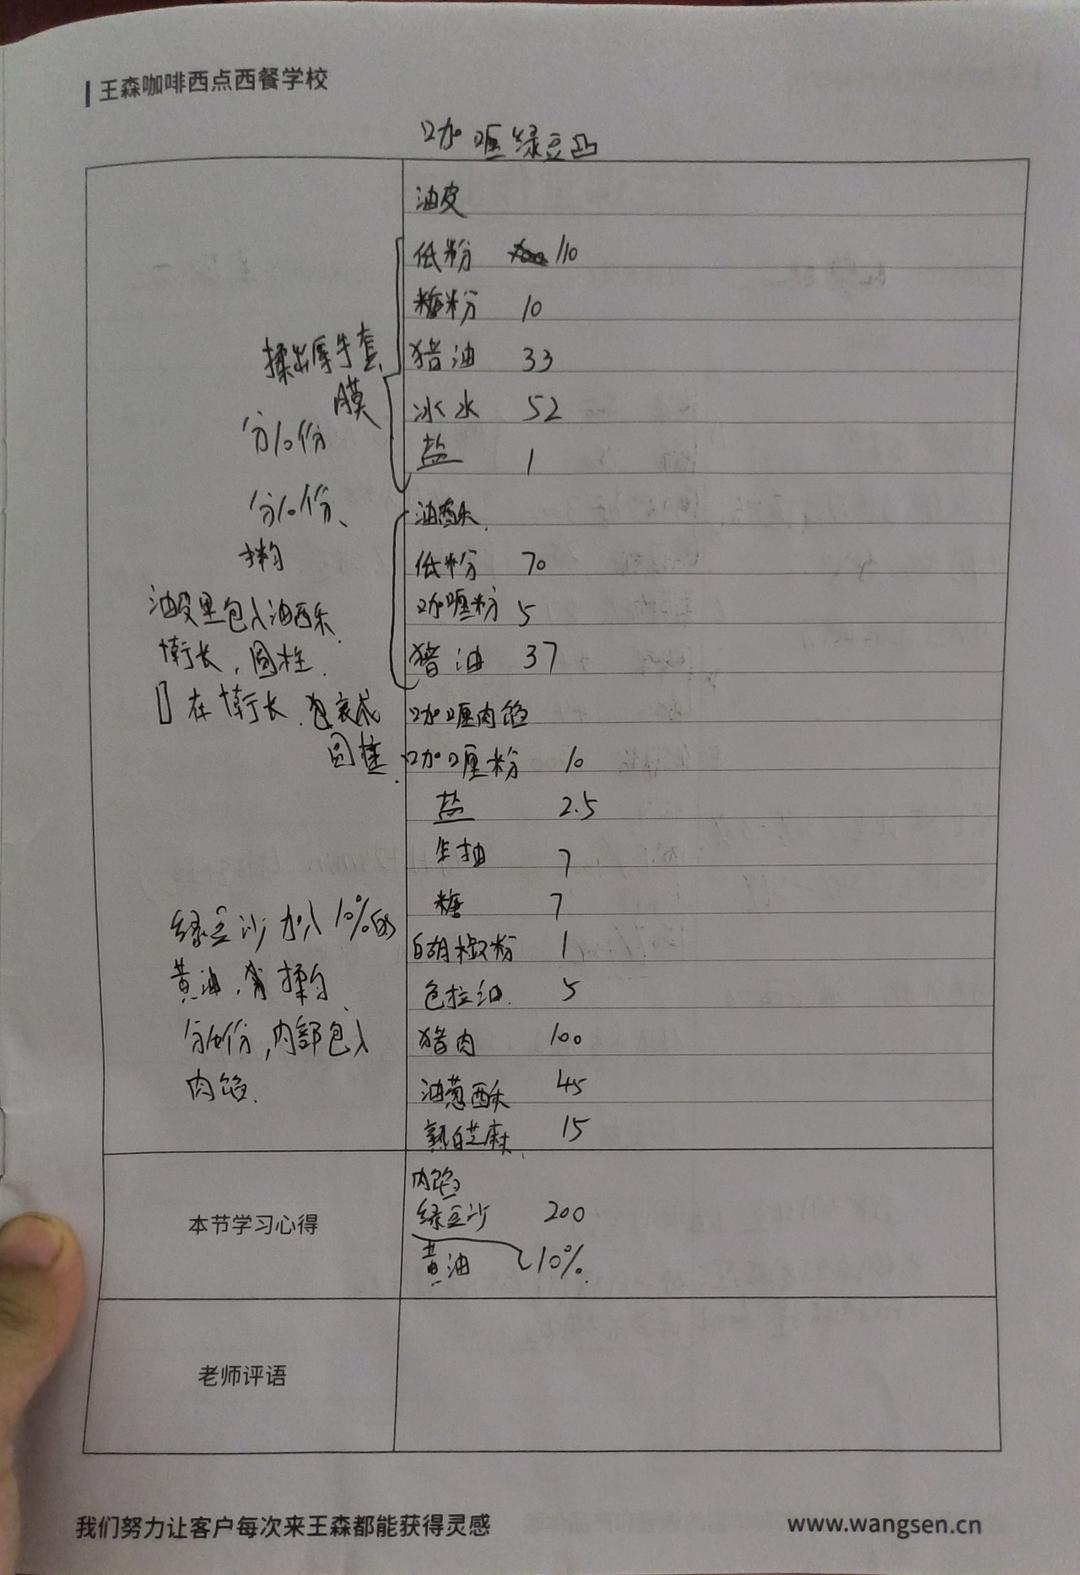 王森咖啡西点西餐学校
咖喱绿豆凸
油皮
低粉 110
糖粉 10
猪油 33
冰水 52
盐 1
油酥
低粉 70
咖喱粉 5
猪油 37
咖喱肉馅
咖喱粉 10
盐 2.5
生抽 7
糖 7
白胡椒粉 1
色拉油 5
猪肉 100
油葱酥 45
熟白芝麻 15
揉出厚手套
膜
分10份
分10份、
拌匀
油皮里包入油酥
擀长,圆柱.
在擀长.卷成
圆柱.
绿豆沙加入10%的
黄油,揉匀
分10份,内部包入
肉馅.
本节学习心得
内馅
绿豆沙 200
黄油 10%
老师评语
我们努力让客户每次来王森都能获得灵感
www.wangsen.cn